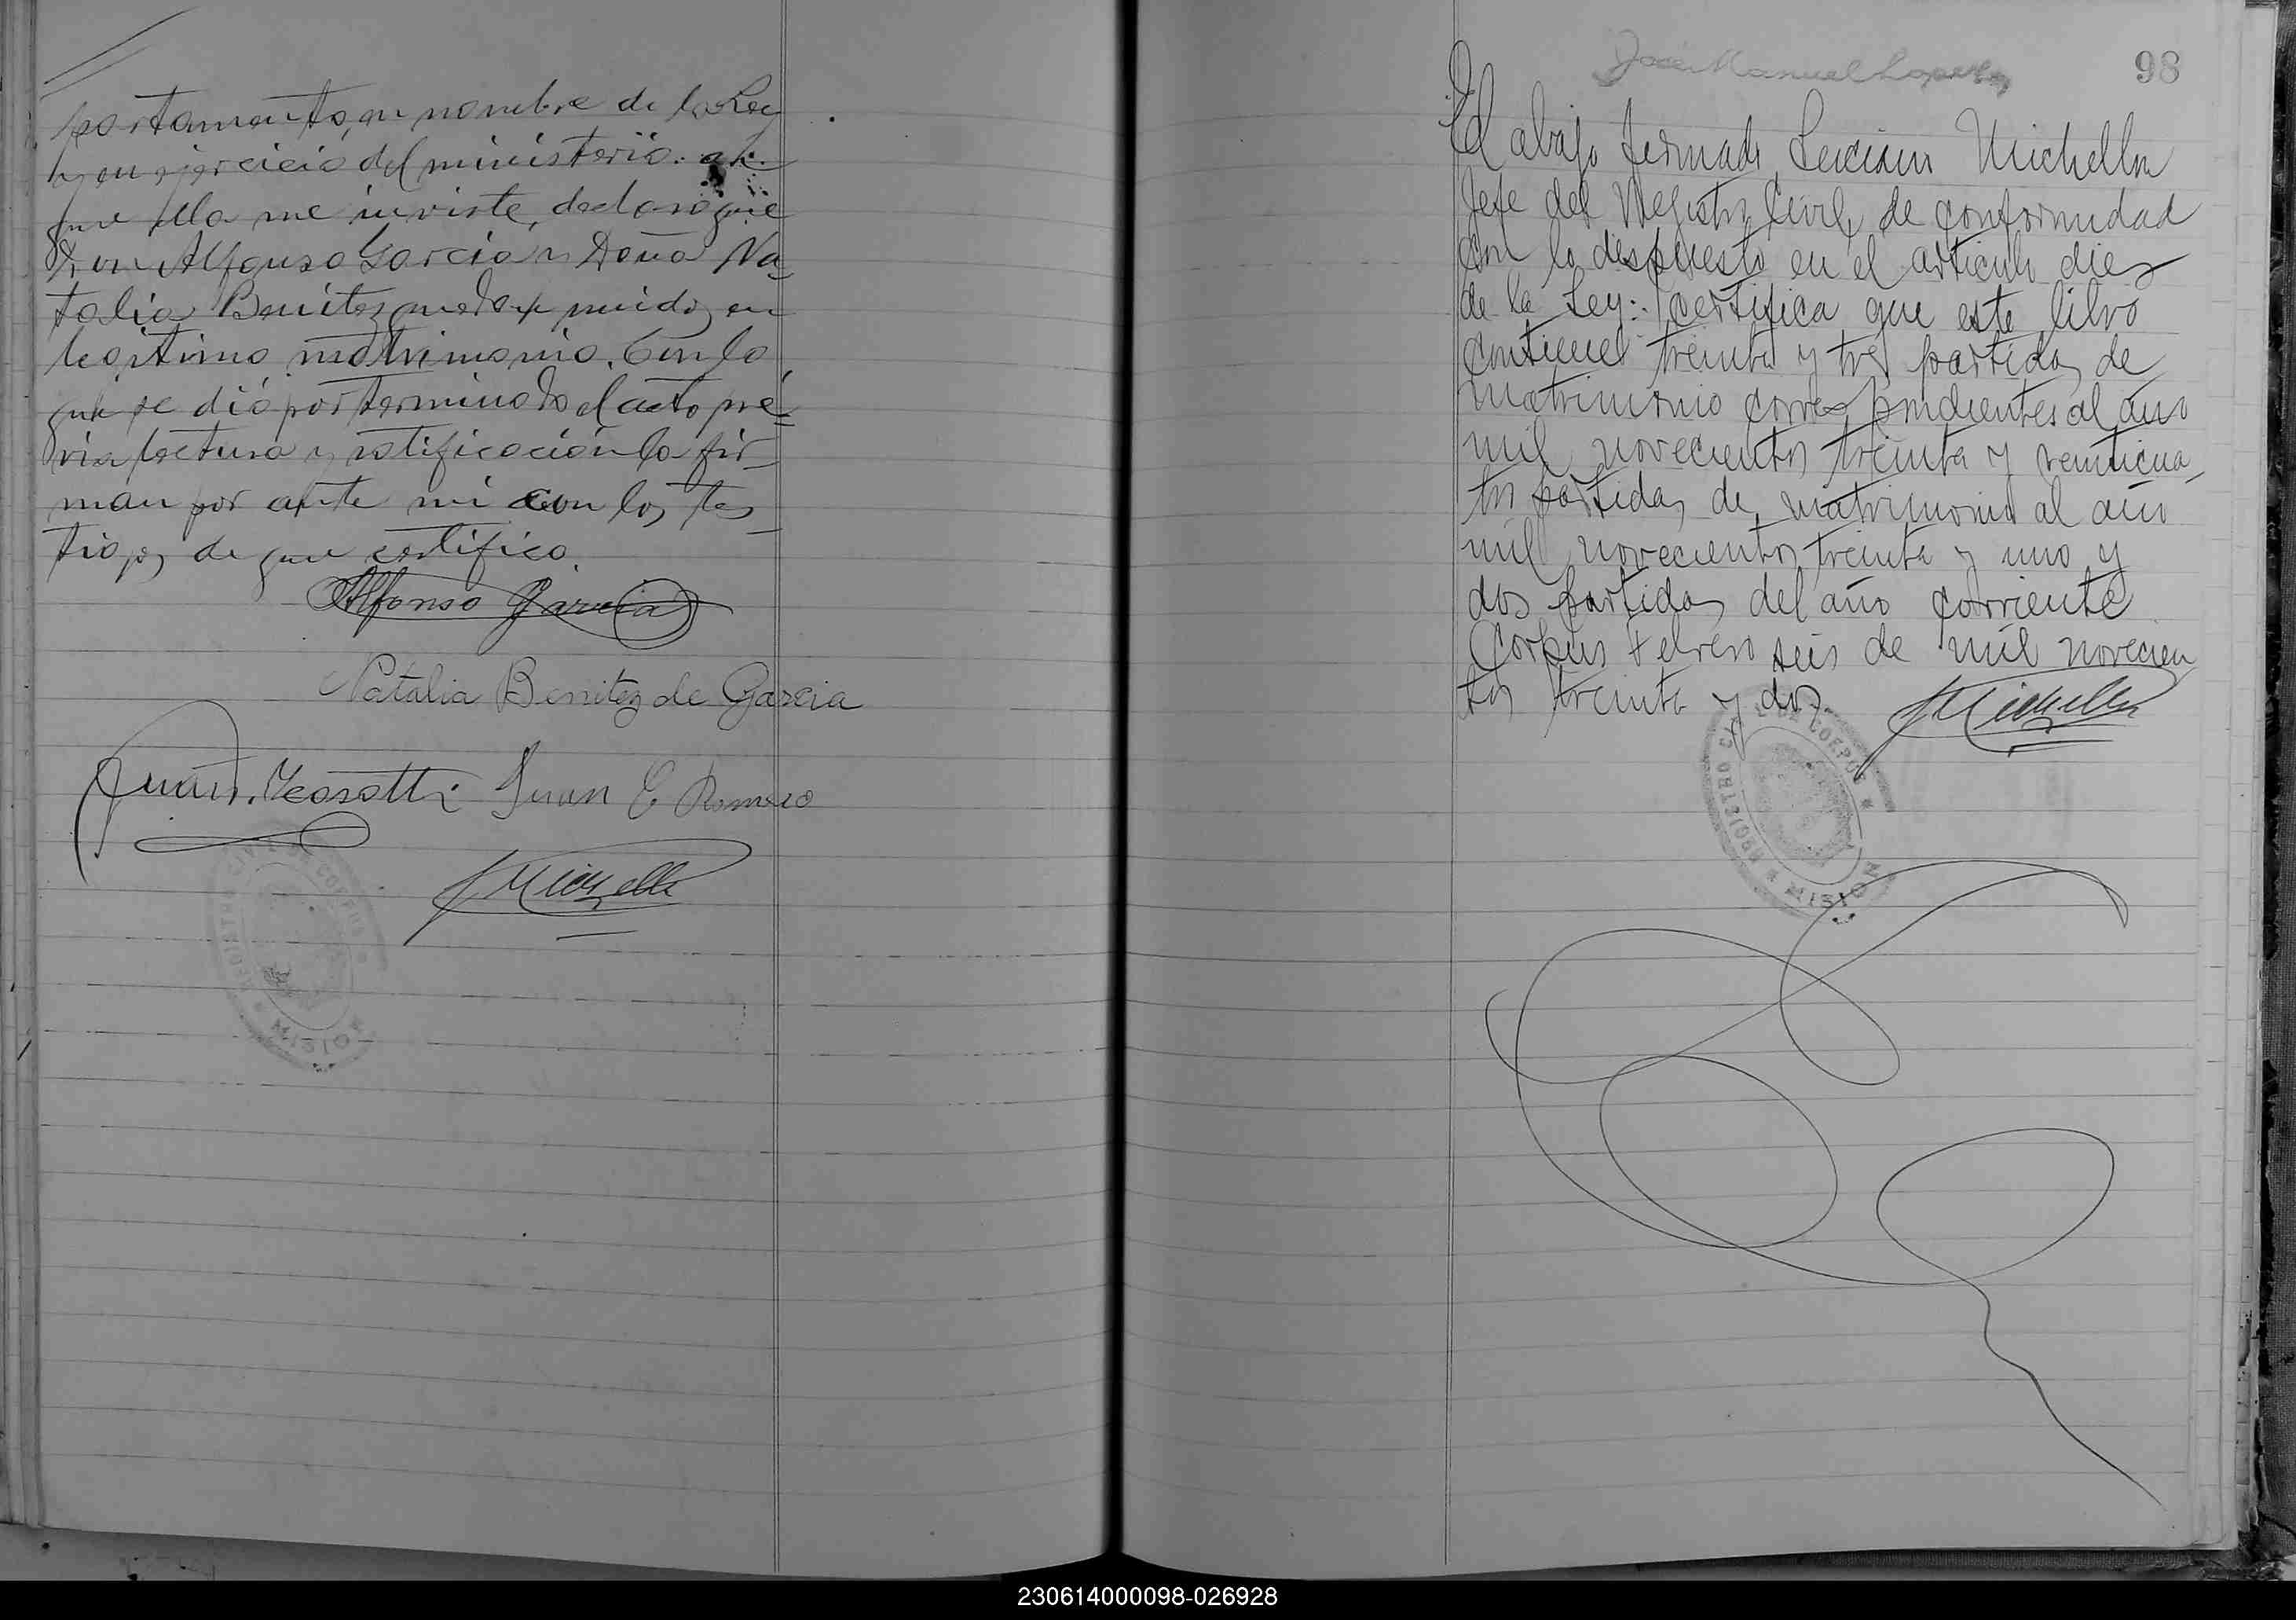 portamento, en nombre de la Ley
y en ejercicio del ministerio
que ella me inviste, declaro que
Don Alfonso Garcia y Doña Na
talia Benitez quedan unidos en
legitimo matrimonio. Con lo
que se dió por terminado el acto pré
via lectura y ratificación la fir
man por ante mi con los tes
tigos de que certifico.
Alfonso Garcia
Natalia Benitez de Garcia
Juan Juan E Romero
Michellon
REGISTRO CIVIL DE CORPUS * MISIONES *
José Manuel
98
El abajo firmado, Luciano Michellon
Jefe del Registro Civil, de conformidad
con lo dispuesto en el articulo diez
de la Ley: certifica que este libro
contiene treinta y tres partidas de
matrimonio correspondientes al año
mil novecientos treinta y veinticua
tro partidas de matrimonio al año
mil novecientos treinta y uno y
dos partidas del año corriente
Corpus Febrero seis de mil novecien
tos treinta y dos.
Michellon
REGISTRO CIVIL DE CORPUS * MISIONES *
230614000098-026928